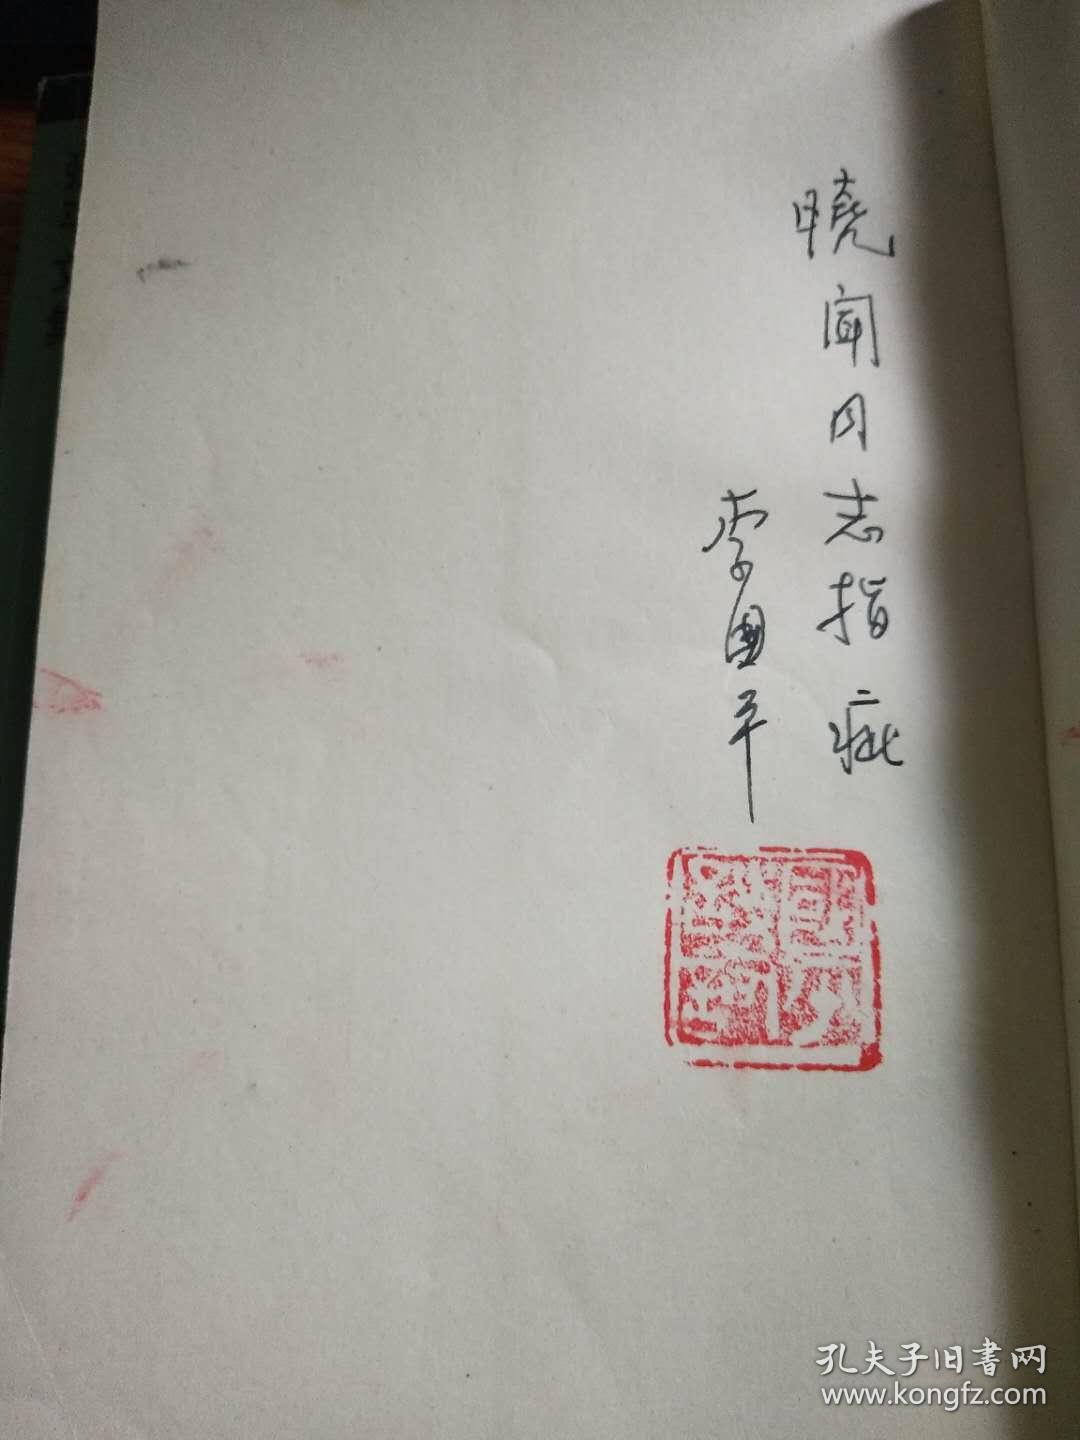 晓闻同志指疵
李国平
孔夫子旧書网
www.kongfz.com